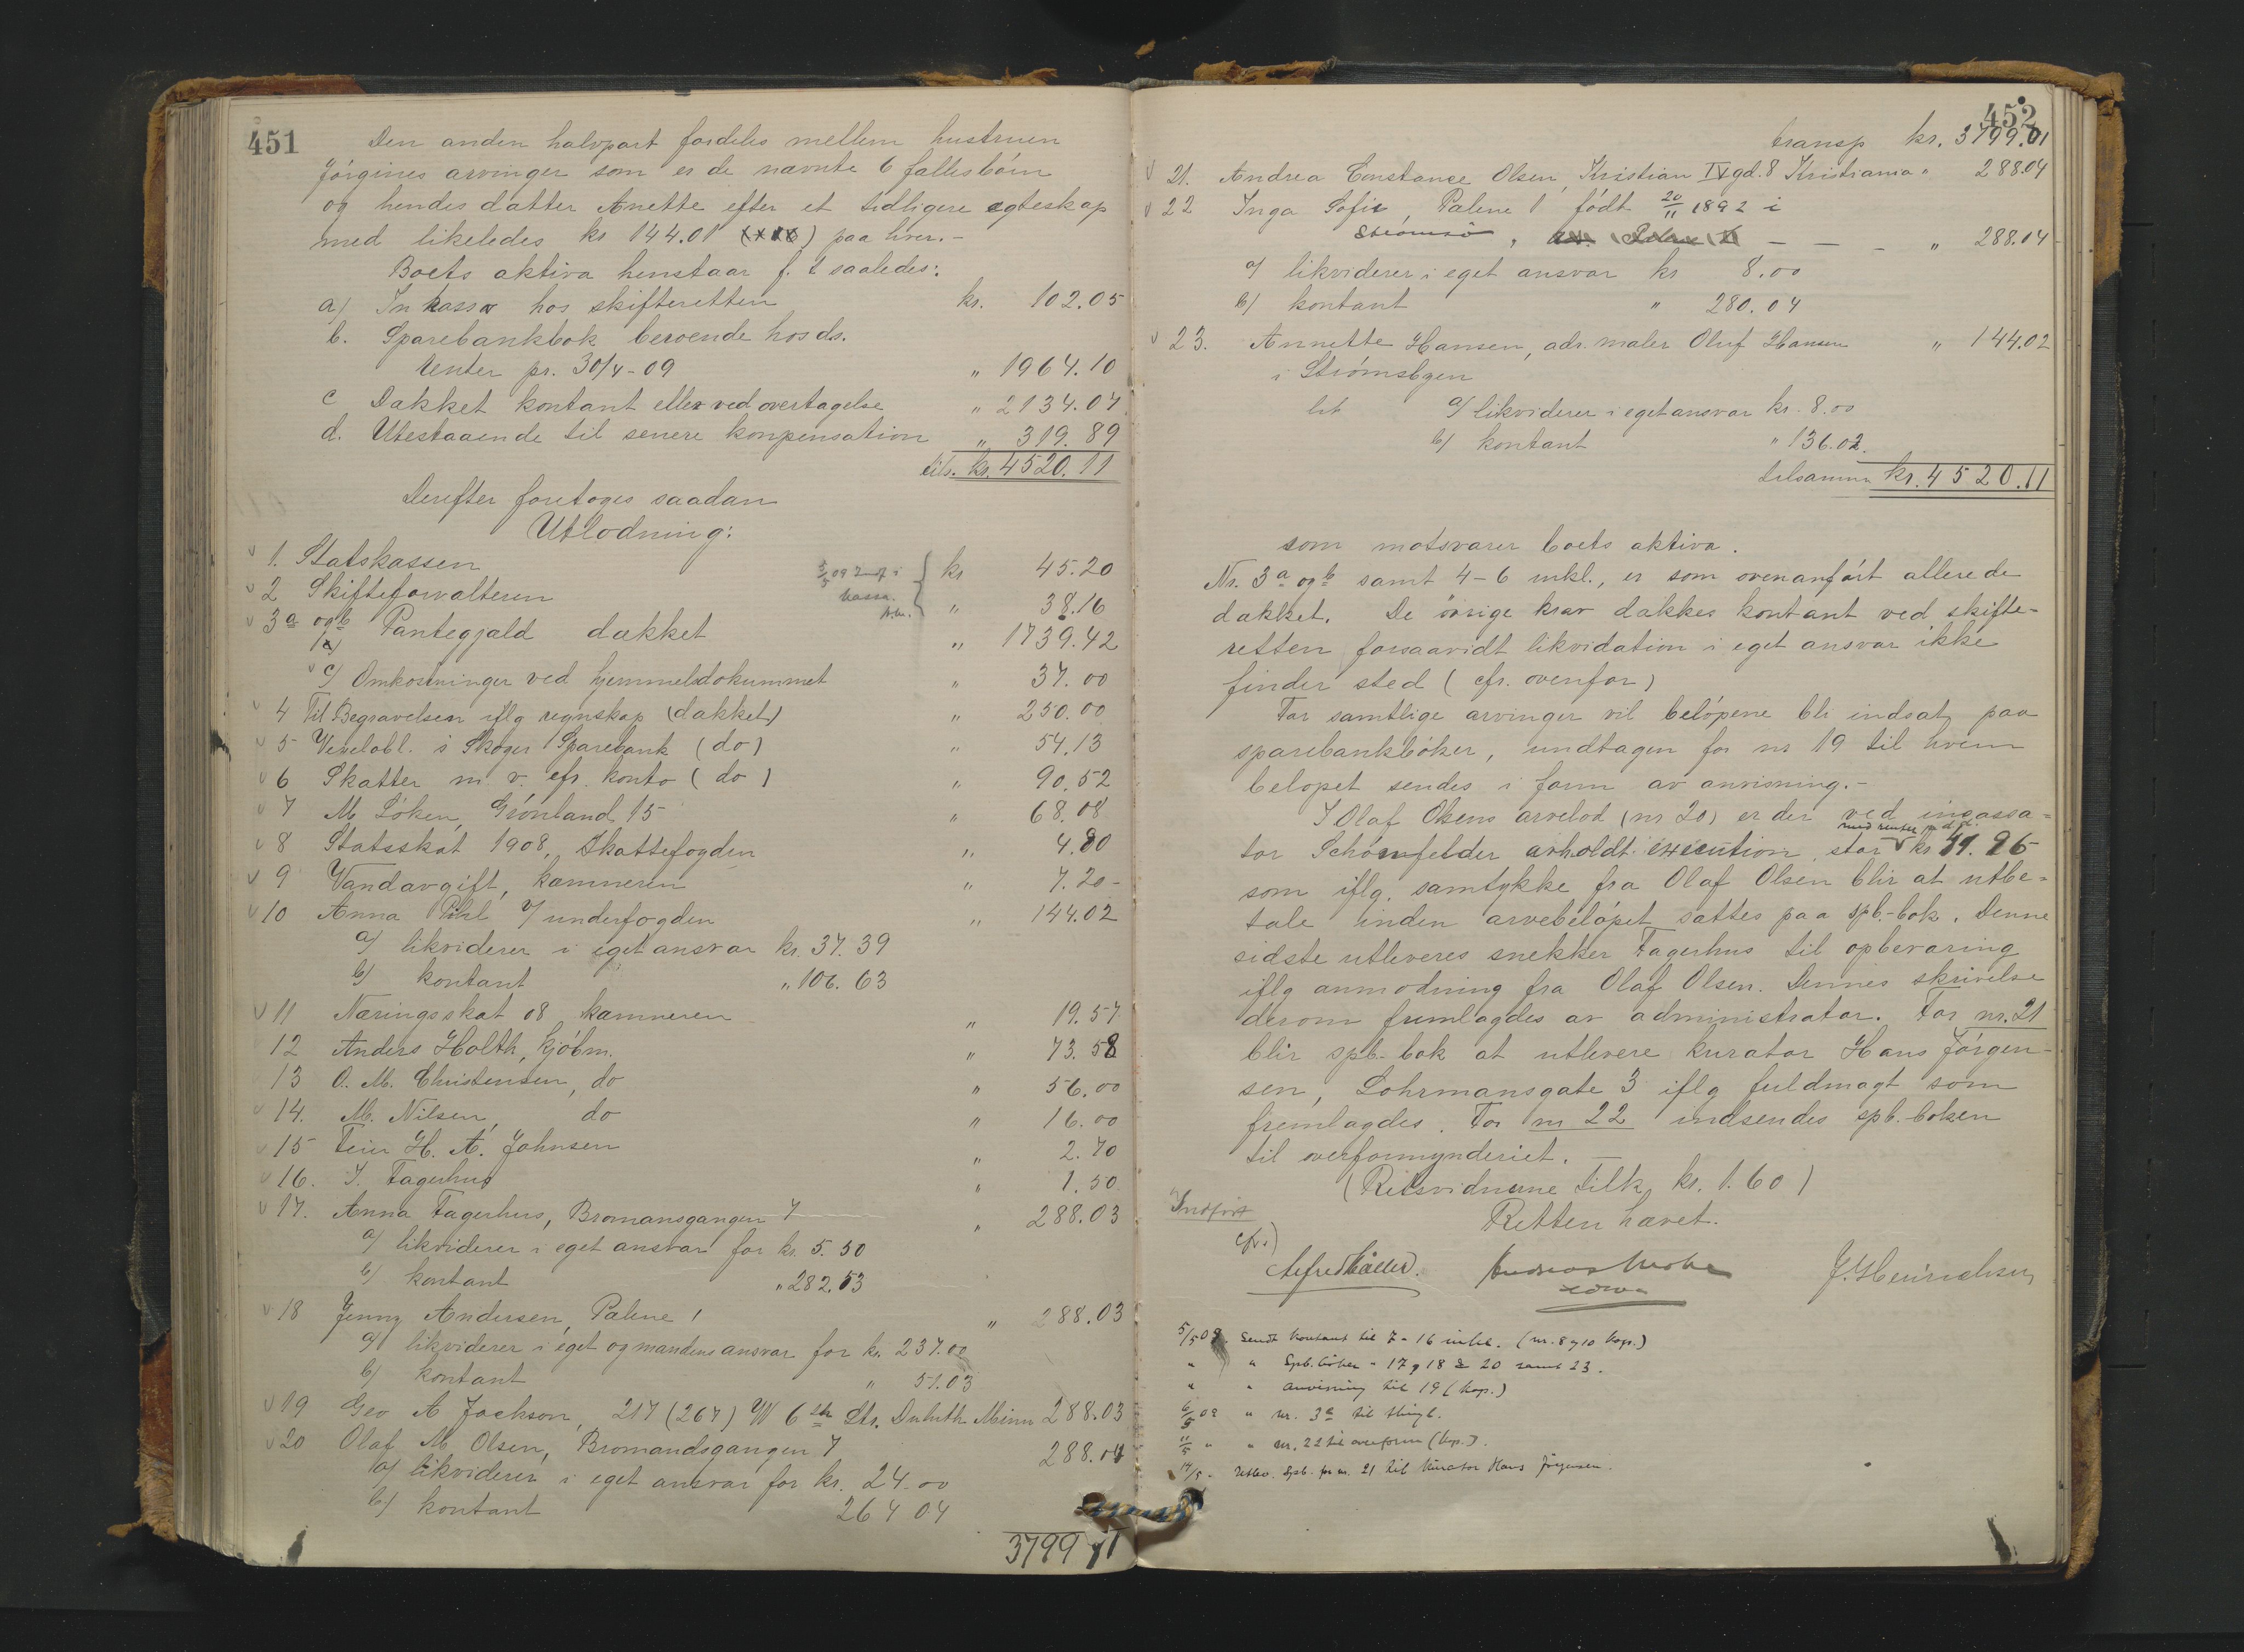 451
Den anden halvpart fordeles mellem hustruen
Jörgines arvinger som er de nævnte 6 fællesbörn
og hendes datter Anette efter et tidligere egteskap
med likeledes kr 144.01 paa hver. -
Boets aktiva henstaar f. t saaledes:
a) In kassa hos skifteretten kr. 102.05
b. Sparebankbok beroende hos ds.
renter pr. 30/4-09 " 1964.10
c Dækket kontant eller ved overtagelse " 2134.07
d. Utestaaende til senere kompensation " 319.89
tils. kr. 4520.11
Derefter foretoges saadan
Utlodning:
1. Statskassen kr 45.20
5/5 09 indf i kassa.
2 Skifteforvalteren " 38.16
3a og b Pantegjæld dækket " 1739.42
c) Omkostninger ved hjemmelsdokummet " 37.00
4 Til Begravelsen iflg regnskap (dækket) " 250.00
5 Vexelobl. i Skoger Sparebank (do) " 54.13
6 Skatter m. v. cfr. konto (do) " 90.52
7 M. Löken, Grönland 15 " 68.08
8 Statsskat 1908, Skattefogden " 4.80
9 Vandavgift, kæmneren " 7.20-
10 Anna Pihl v/ underfogden " 144.02
a) likviderer i eget ansvar kr. 37.39
b) kontant " 106.63
11 Næringsskat 08 kæmneren " 19.57
12 Anders Holth, kjöbm. " 73.58
13 O. M. Christensen, do " 56.00
14. M. Nilsen, do " 16.00
15 Feier H. A. Johnsen " 2.70
16. J. Fagerhus " 1.50
17. Anna Fagerhus, Bromansgangen 7 " 288.03
a) likviderer i eget ansvar for kr. 5.50
b) kontant " 282.53
18 Jenny Andersen, Palene 1 " 288.03
a) likviderer i eget og mandens ansvar for kr. 237.00
b) kontant " 51.03
19 Geo A Jackson, 217 (267) W 6th Str. Duluth Minn 288.03
20 Olaf M Olsen, Bromandsgangen 7 288.04
a) likviderer i eget ansvar for kr. 24.00
b) kontant 264 04
3799 01
452
transp kr. 3799.01
21. Andrea Constance Olsen, Kristian IV gd. 8 Kristiania " 288.04
22 Inga Sofie, Palene 1 födt 20/11 1892 i
Strömsö, - - - " 288.04
a) likviderer i eget ansvar kr 8.00
b) kontant " 280.04
23. Annette Hansen, adr. maler Oluf Hansen " 144.02
i Strömsbyen
a) likviderer i eget ansvar kr. 8.00
b) kontant " 136.02.
tilsammen kr. 4520.11
som motsvarer boets aktiva.
Nr. 3a og b samt 4-6 inkl., er som ovenanfört allerede
dækket. De övrige krav dækkes kontant ved skifte-
retten forsaavidt likvidation i eget ansvar ikke
finder sted (cfr. ovenfor)
For samtlige arvinger vil belöpene bli indsat paa
sparebankböker, undtagen for nr 19 til hvem
belopet sendes i form av anvisning. -
I Olaf Olsens arvelod (nr 20) er der ved incassa-
tor Schönfelder avholdt execution, stor med renter kr
som iflg. samtykke fra Olaf Olsen blir at utbe-
tale inden arvebelöpet sættes paa spb.-bok. Denne
sidste utleveres snekker Fagerhus til opbevaring
iflg anmodning fra Olaf Olsen. Dennes skrivelse
derom fremlagdes av administrator. For nr. 21
blir spb.-bok at utlevere kurator Hans Jörgen-
sen, Lohrmansgate 3 iflg fuldmagt som
fremlagdes. For nr 22 indsendes spb.-boken
til overformynderiet. -
(Retsvidnerne tilk. kr. 1.60)
Retten hævet.
Indfört
cfr.)
Alfred J. Heinrichsen
5/5 09. Sendt kontant til 7-16 inkl. (nr. 8 og 10 kop.)
" " Spb. böker - 17, 18 & 20 samt 23.
" " anvisning til 19 (kop.)
6/5 09 " nr. 3a til thingl.
11/5 " " nr. 22 til overform (kop.).
14/5 - Utlev. Spb. for nr. 21 til kurator Hans Jörgensen.